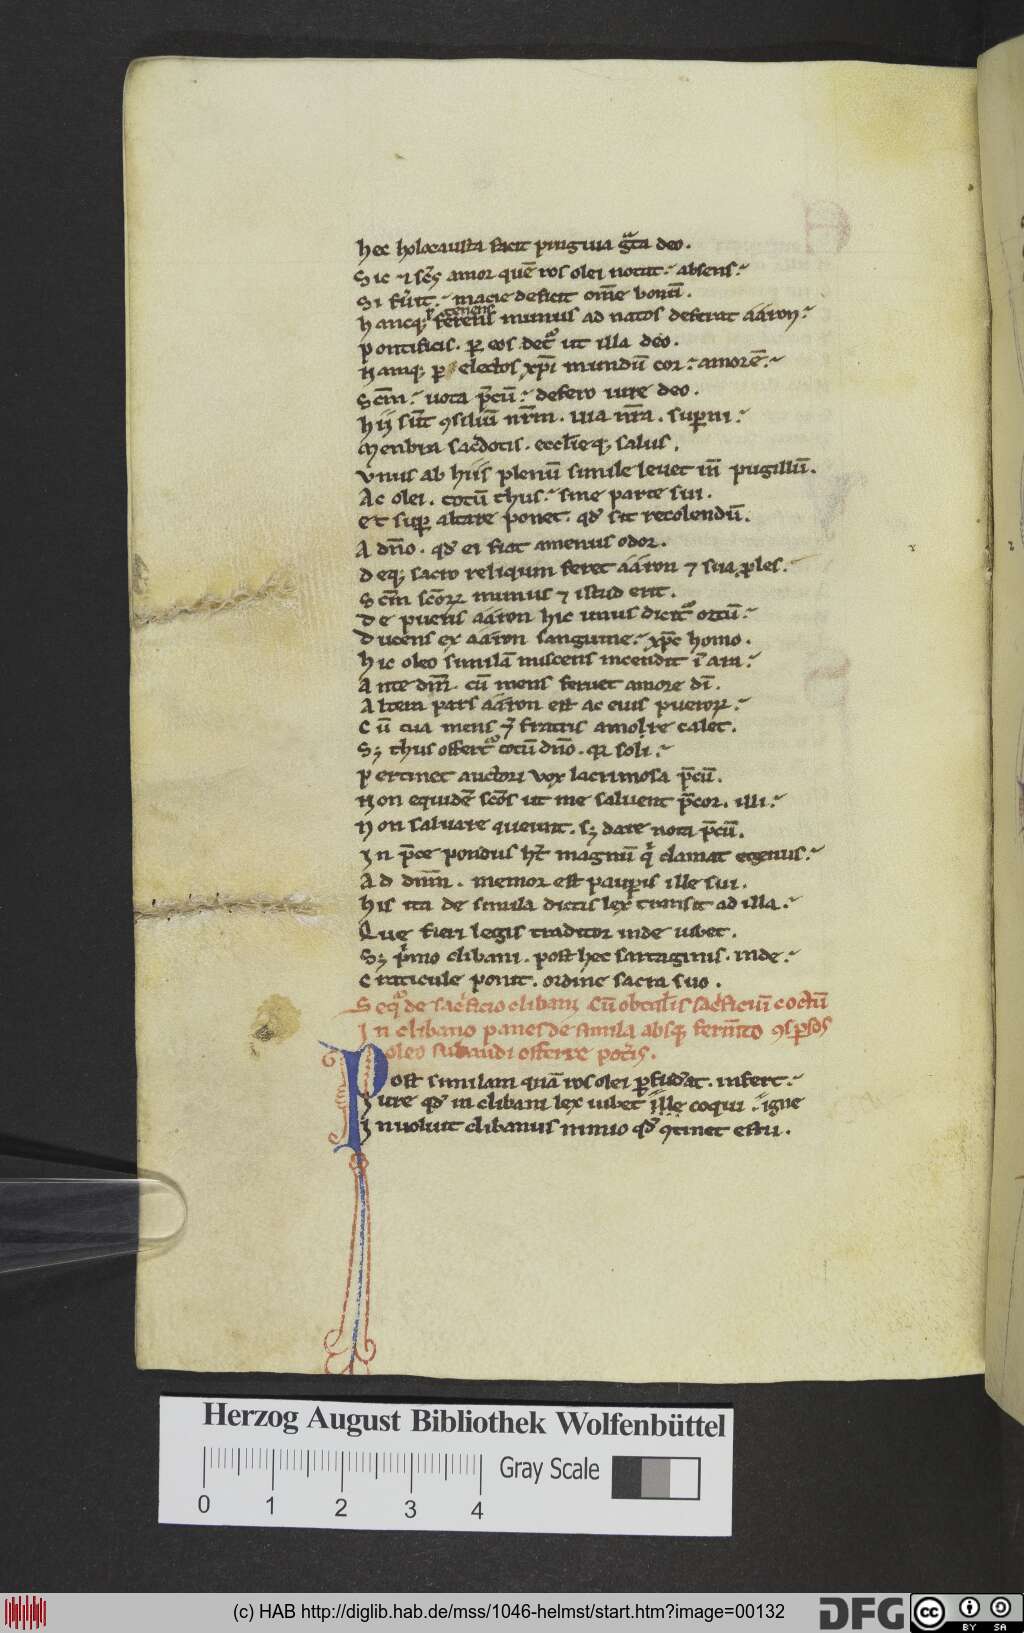 hec holocausta facit pinguia gᵃta deo.
Sic ⁊ scꝫ amor quē ros olei notat: absens:
Si fuīt: macie deficit om̄e bonū.
p̱ ꝯtenens
hancqꝫ ferens munus ad natos deferat aáron:
pontificis. ꝑ eos decͦ ut illa deo.
Namqꝫ ꝑ electos xp̄i mundū cor: amorē:
Scm̄: uota p̄cū: defero iure deo.
hij sūt ꝯsiliū nr̄m. uia nr̄a. suꝑni:
Menbra sac̄dotis. eccl̄ieqꝫ salus.
Vnus ab hiis plenū simile leuet in̄ pugillū.
Ac olei. totū thus: sine parte sui.
Et suꝑ altare ponet. qd̄ sit recolendū.
A dn̄o. qd̄ ei fiat amenus odor.
Deqꝫ sacro reliqum feret aáron ⁊ sua ꝓles.
Scm̄ scōꝝ munus ⁊ istud erit.
De pueris aáron hic unus dicitͬ ortū:
Ducens ex aáron sanguine: xp̄c homo.
hic oleo similā miscens incendit ī ara:
Ante dn̄m. cū mens feruet amore dī.
Altera pars aáron est ac eius pueroꝝ:
Cū tua mens ī fratris amore calet.
Sꝫ thus offertͬ totū dn̄o. qꝛ soli:
pertinet auctori vox lacrimosa p̄cū.
Non equidē scōs ut me saluent p̄cor. illi:
Non saluare queunt. sꝫ dare uota p̄cū.
In p̄ce pondus ht̄ magnū qⁱ clamat egenus:
Ad dn̄m. memor est pauꝑis ille sui.
his ita de simila dictis lex transit ad illa:
Que fieri legis traditor inde iubet.
Sꝫ pⁱmo clibani. post hec sartaginis. inde:
Craticule ponit. ordine sacra suo.
Seqͬ de sac̄ficio clibani Cū obtul̄is sac̄ficiū coctū
In clibano panes de simila absqꝫ ferm̄to ꝯsꝑsos
oleo subaudi offerre pot̄is.
Post similam quā ros olei ꝑfud̄at. infert:
Iure qd̄ in clibani lex iubet ille coqui. igne
Inuoluit clibanus nimio qd̄ ꝯtinet estu.
Herzog August Bibliothek Wolfenbüttel
0 1 2 3 4 Gray Scale
(c) HAB http://diglib.hab.de/mss/1046-helmst/start.htm?image=00132
DFG cc BY SA